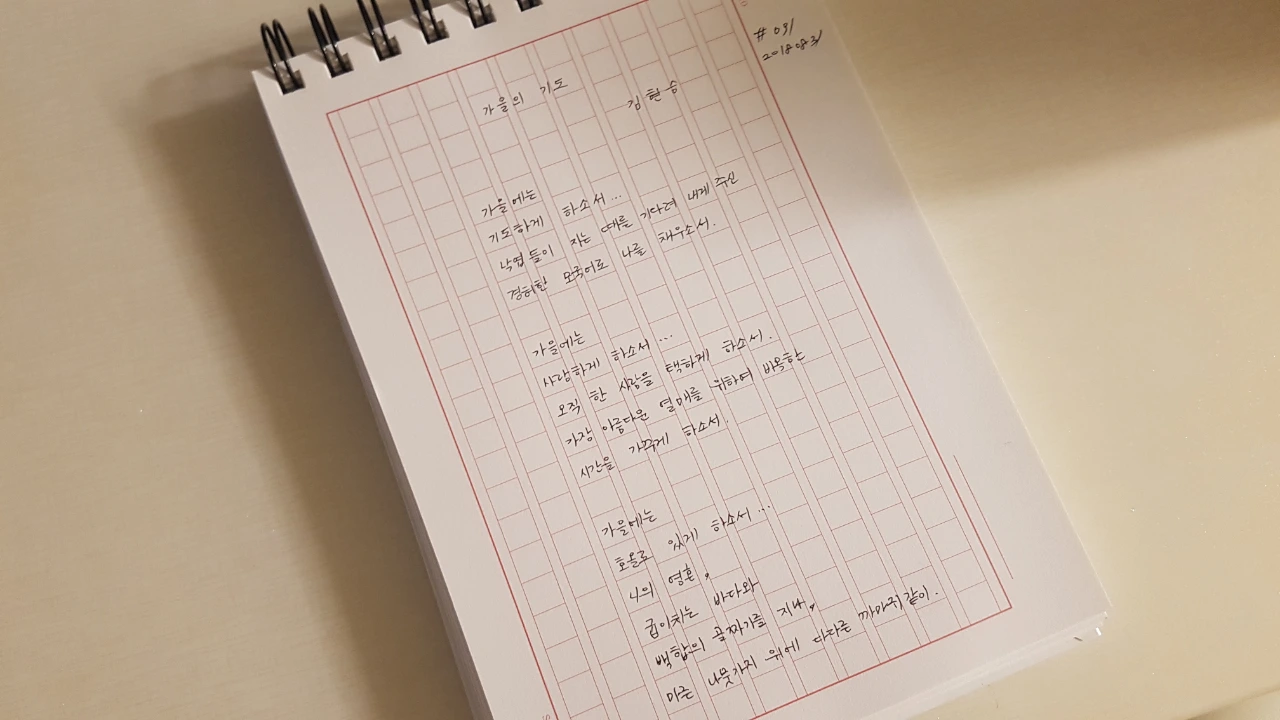 #031
20180831
가을의 기도
김현승
가을에는
기도하게 하소서...
낙엽들이 지는 때를 기다려 내게 주신
겸허한 모국어로 나를 채우소서.
가을에는
사랑하게 하소서...
오직 한 사람을 택하게 하소서.
가장 아름다운 열매를 위하여 비옥한
시간을 가꾸게 하소서.
가을에는
호올로 있게 하소서...
나의 영혼,
굽이치는 바다와
백합의 골짜기를 지나,
마른 나뭇가지 위에 다다른 까마귀같이.